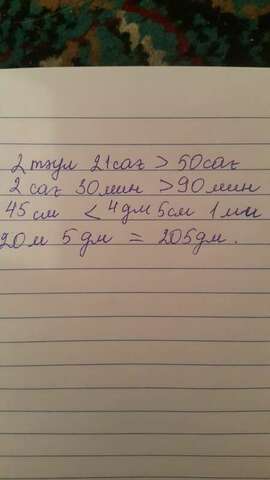 2 тәул 21 сағ > 50 сағ
2 сағ 30 мин > 90 мин
45 см < 4 дм 5 см 1 мм
20 м 5 дм = 205 дм.